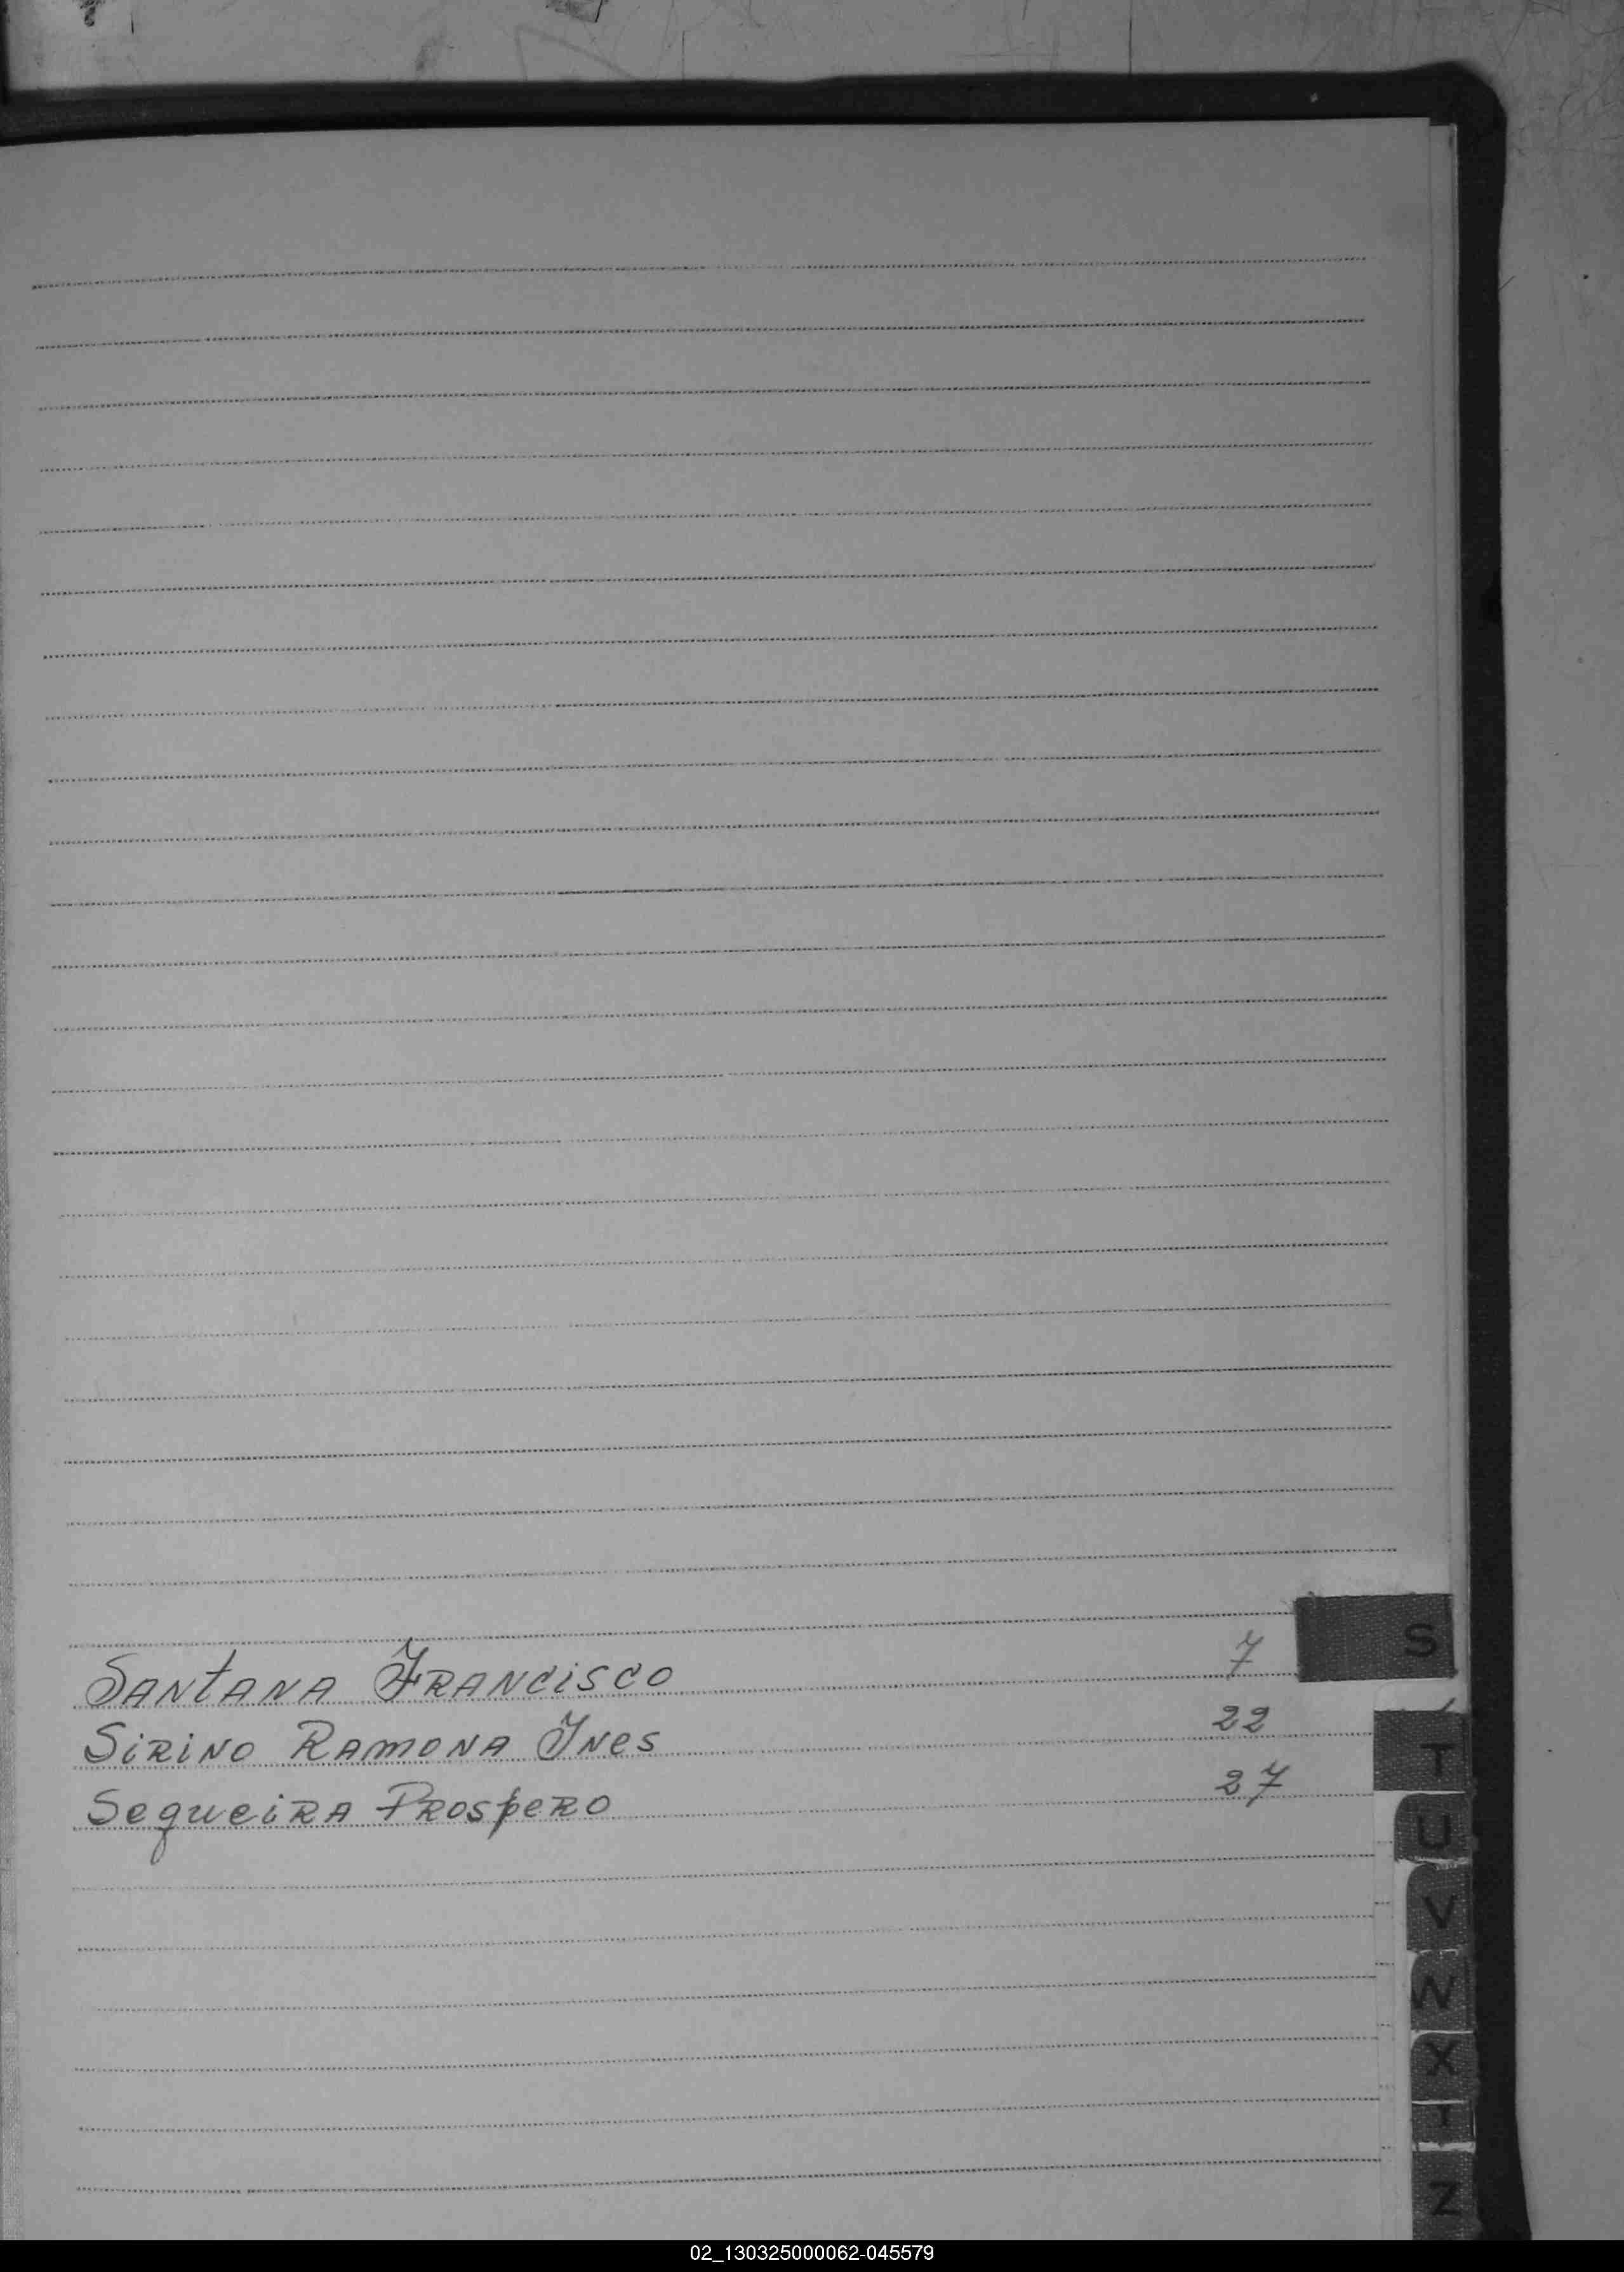 S
SANTANA FRANCISCO 7
SIRINO RAMONA YNES 22
SEQUEIRA PROSPERO 27
T
U
V
W
X
Y
Z
02_130325000062-045579